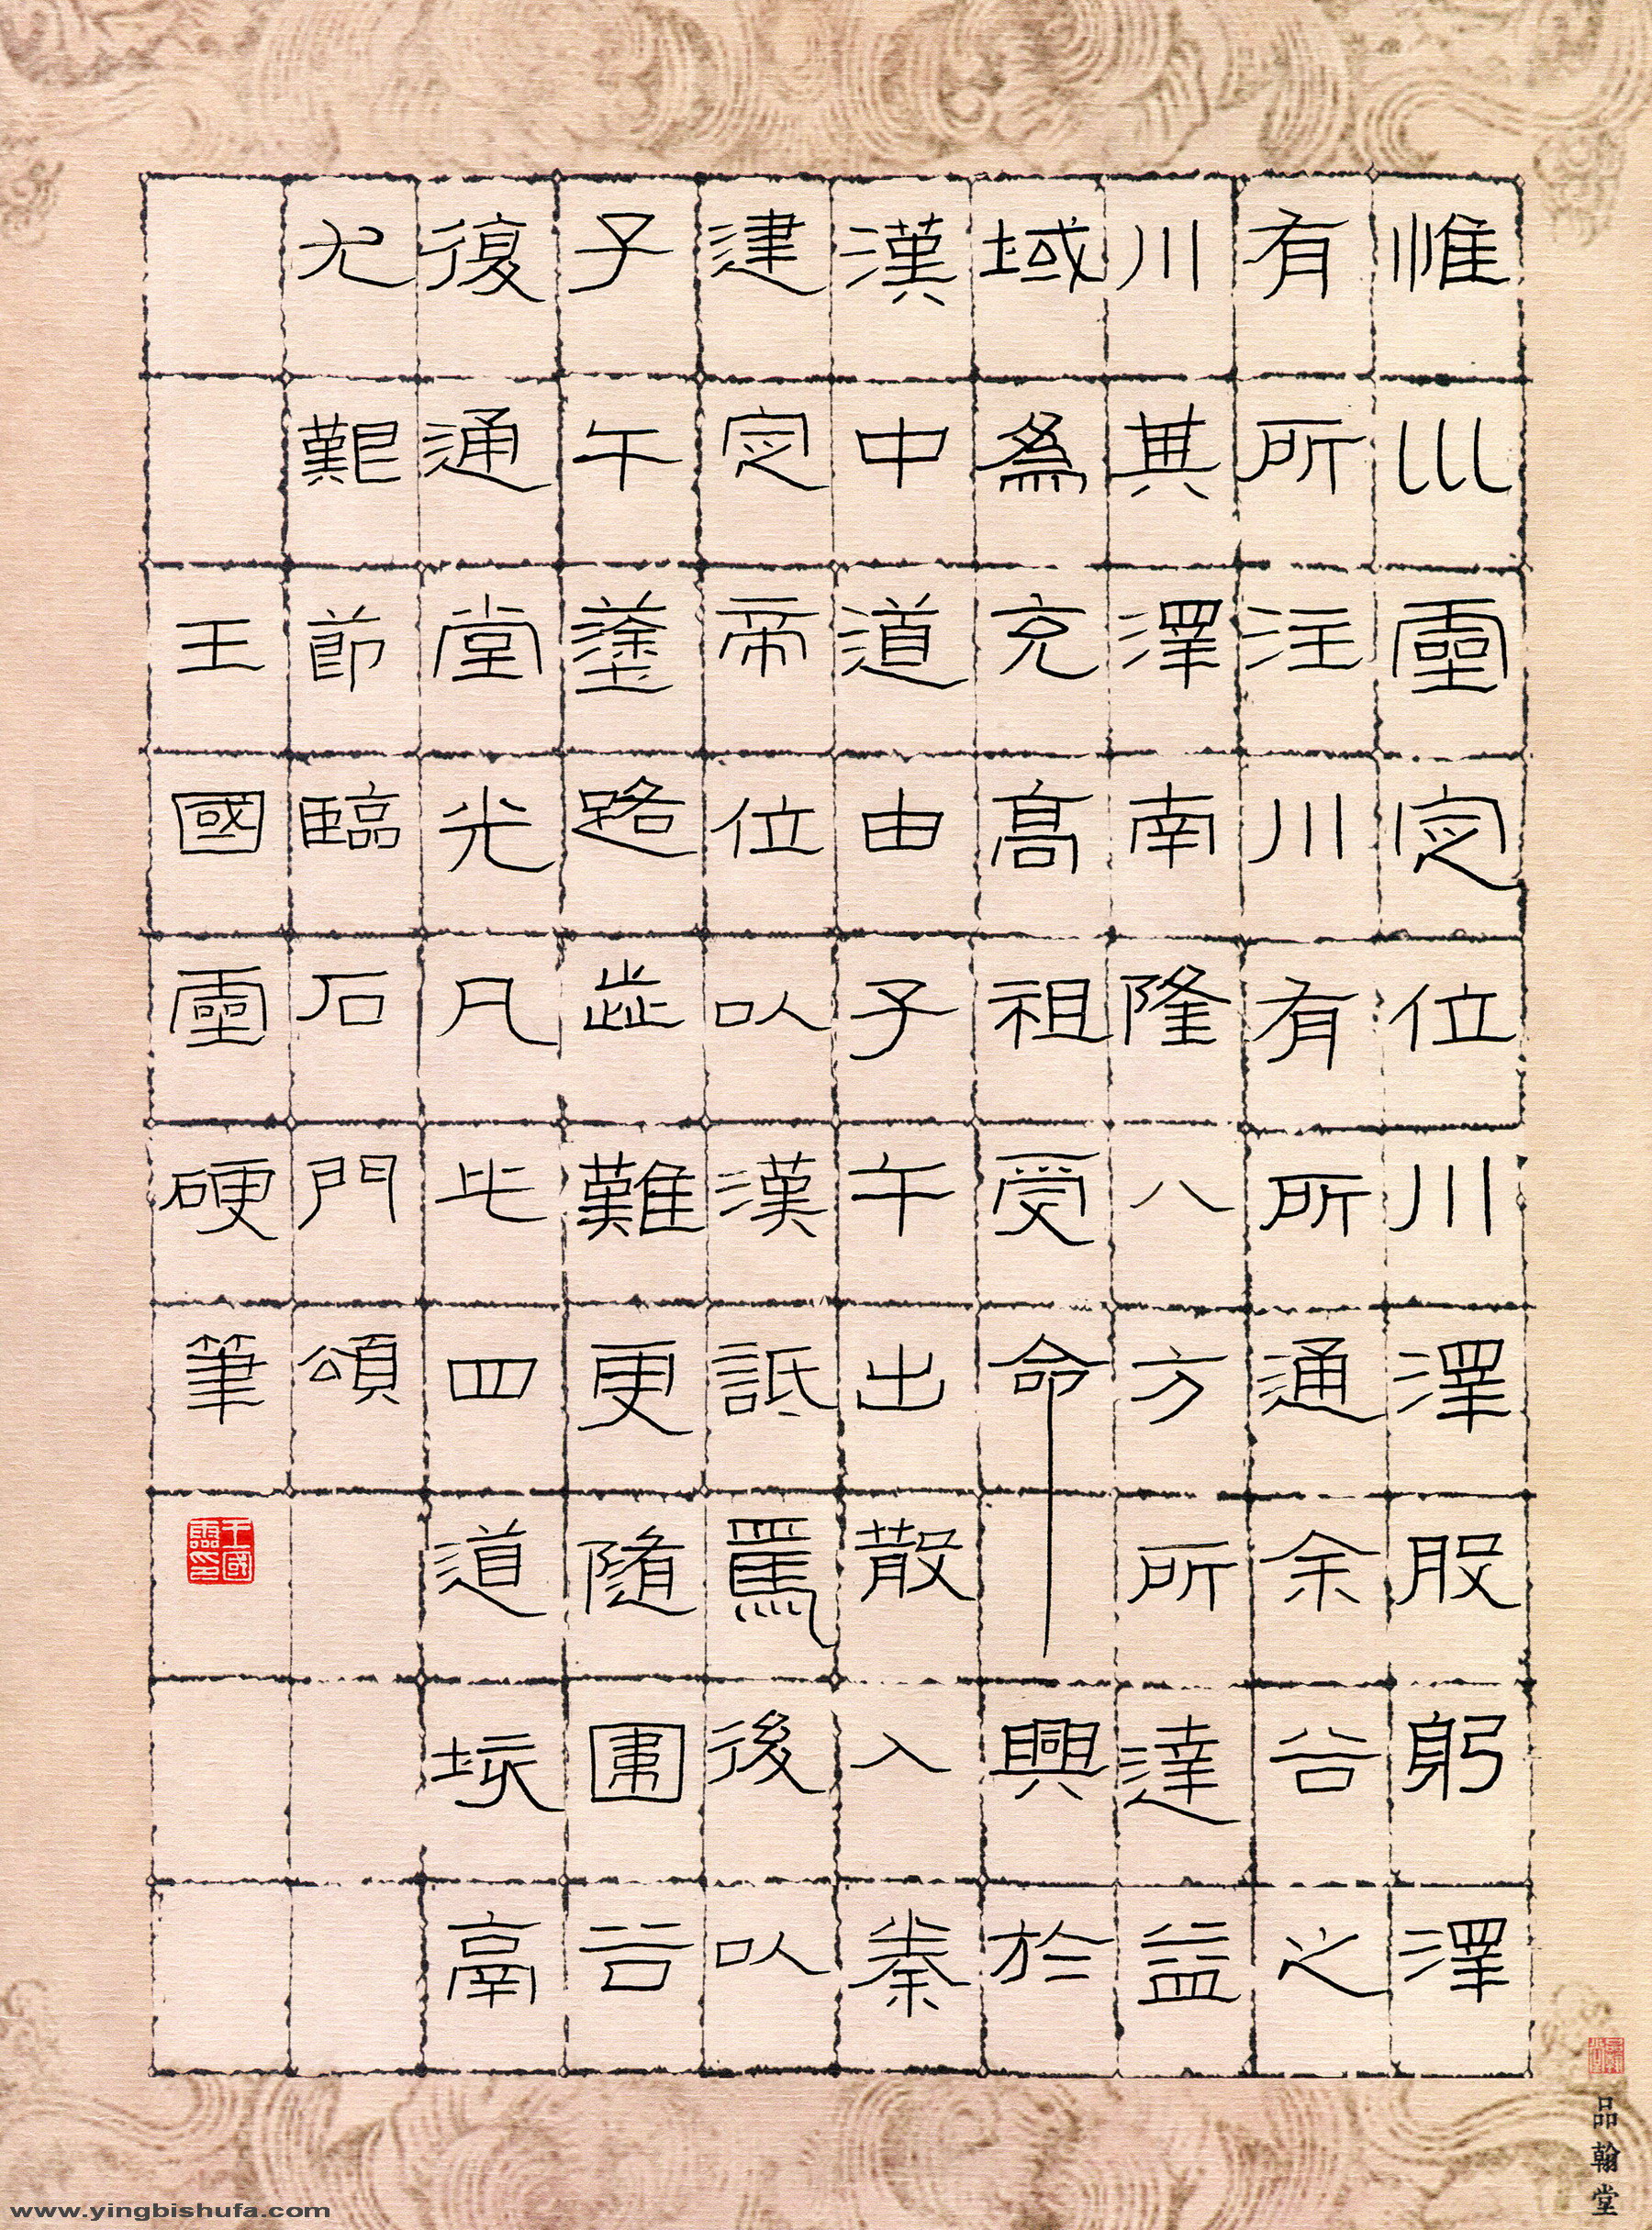 惟巛靈定位川澤股躬澤
有所注川有所通余谷之
川其澤南隆八方所達益
域為充高祖受命興於
漢中道由子午出散入秦
建定帝位以漢詆焉後以
子午塗路歮難更隨圍谷
復通堂光凡此四道垓鬲
尤艱節臨石門頌
王國靈硬筆
王國靈印
品翰堂
www.yingbishufa.com